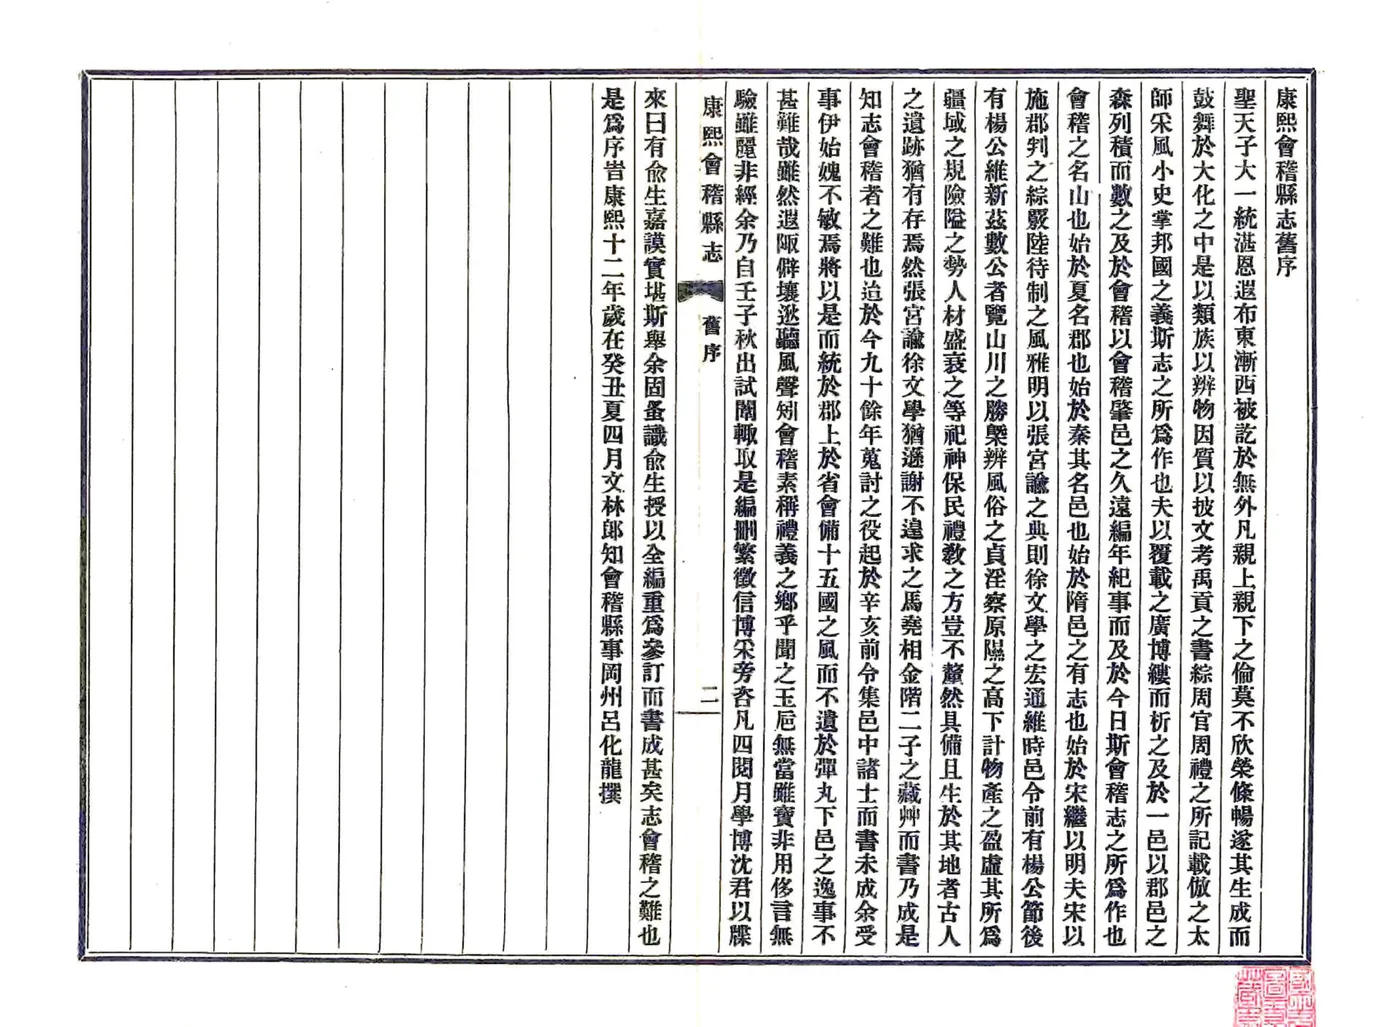 康熙會稽縣志舊序
聖天子大一統湛恩遐布東漸西被訖於無外凡親上親下之倫莫不欣榮條暢遂其生成而
鼓舞於大化之中是以類族以辨物因質以披文考禹貢之書綜周官周禮之所記載倣之太
師采風小史掌邦國之義斯志之所爲作也夫以覆載之廣博縷而析之及於一邑以郡邑之
森列積而數之及於會稽以會稽肇邑之久遠編年紀事而及於今日斯會稽志之所爲作也
會稽之名山也始於夏名郡也始於秦其名邑也始於隋邑之有志也始於宋繼以明夫宋以
施郡判之綜覈陸待制之風雅明以張宮諭之典則徐文學之宏通維時邑令前有楊公節後
有楊公維新茲數公者覽山川之勝槩辨風俗之貞淫察原隰之高下計物產之盈虛其所爲
疆域之規險隘之勢人材盛衰之等祀神保民禮敎之方豈不釐然具備且生於其地者古人
之遺跡猶有存焉然張宮諭徐文學猶遜謝不遑求之馬堯相金階二子之藏艸而書乃成是
知志會稽者之難也迨於今九十餘年蒐討之役起於辛亥前令集邑中諸士而書未成余受
事伊始媿不敏焉將以是而統於郡上於省會備十五國之風而不遺於彈丸下邑之逸事不
甚難哉雖然遐陬僻壤逖聽風聲矧會稽素稱禮義之鄉乎聞之玉巵無當雖寶非用侈言無
驗雖麗非經余乃自壬子秋出試闈輙取是編刪繁徵信博采旁咨凡四閱月學博沈君以牒
康熙會稽縣志
舊序
二
來曰有兪生嘉謨實堪斯舉余固蚤識兪生授以全編重爲參訂而書成甚矣志會稽之難也
是爲序旹康熙十二年歲在癸丑夏四月文林郎知會稽縣事岡州呂化龍撰